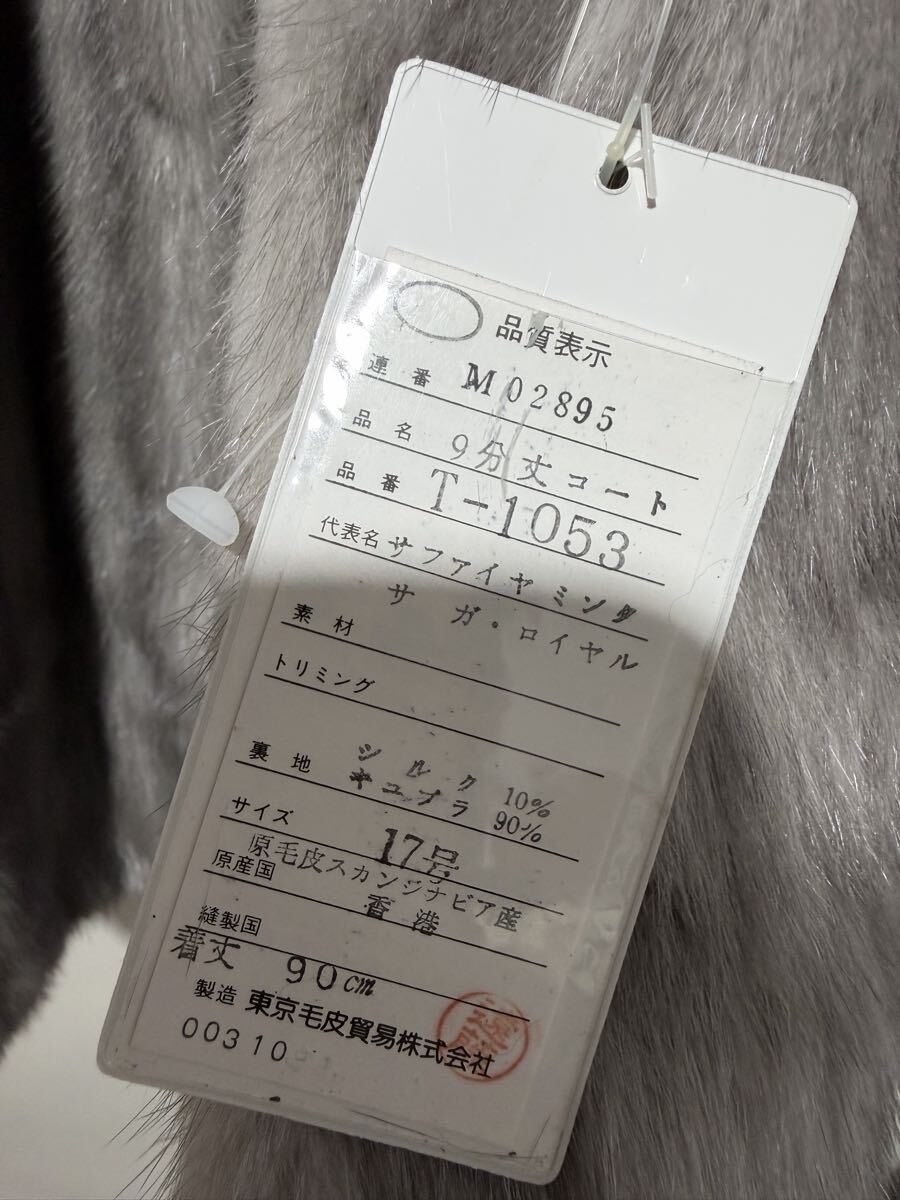 品質表示
連番 M02895
品名 9分丈コート
品番 T-1053
代表名 サファイヤミンク
サガ・ロイヤル
素材
トリミング
裏地 シルク 10%
キュプラ 90%
サイズ 17号
原毛皮スカンジナビア産
原産国
香港
縫製国
着丈 90cm
製造 東京毛皮貿易株式会社
00310